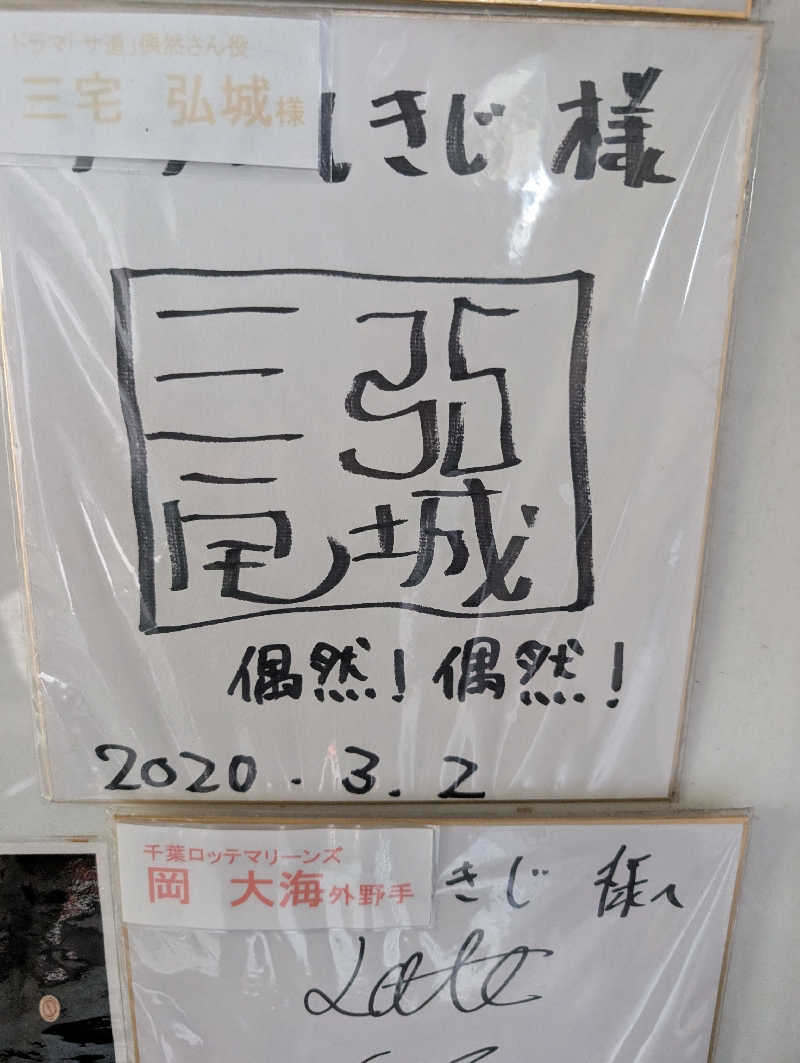 ドラマ「サ道」偶然さん役
三宅 弘城様
しきじ 様
三宅
弘城
偶然!偶然!
2020.3.2
千葉ロッテマリーンズ
岡 大海外野手
きじ 様へ